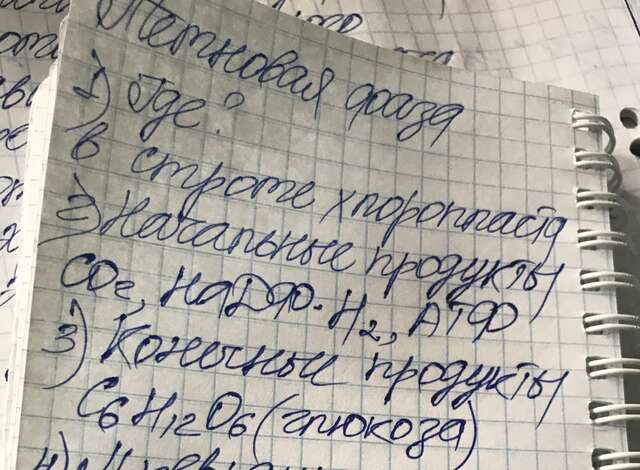 Темновая фаза
1) Где?
в строме хлоропласта
2) Начальные продукты
CO₂, НаДФ·H₂, АТФ
3) Конечные продукты
C₆H₁₂O₆ (глюкоза)
4)